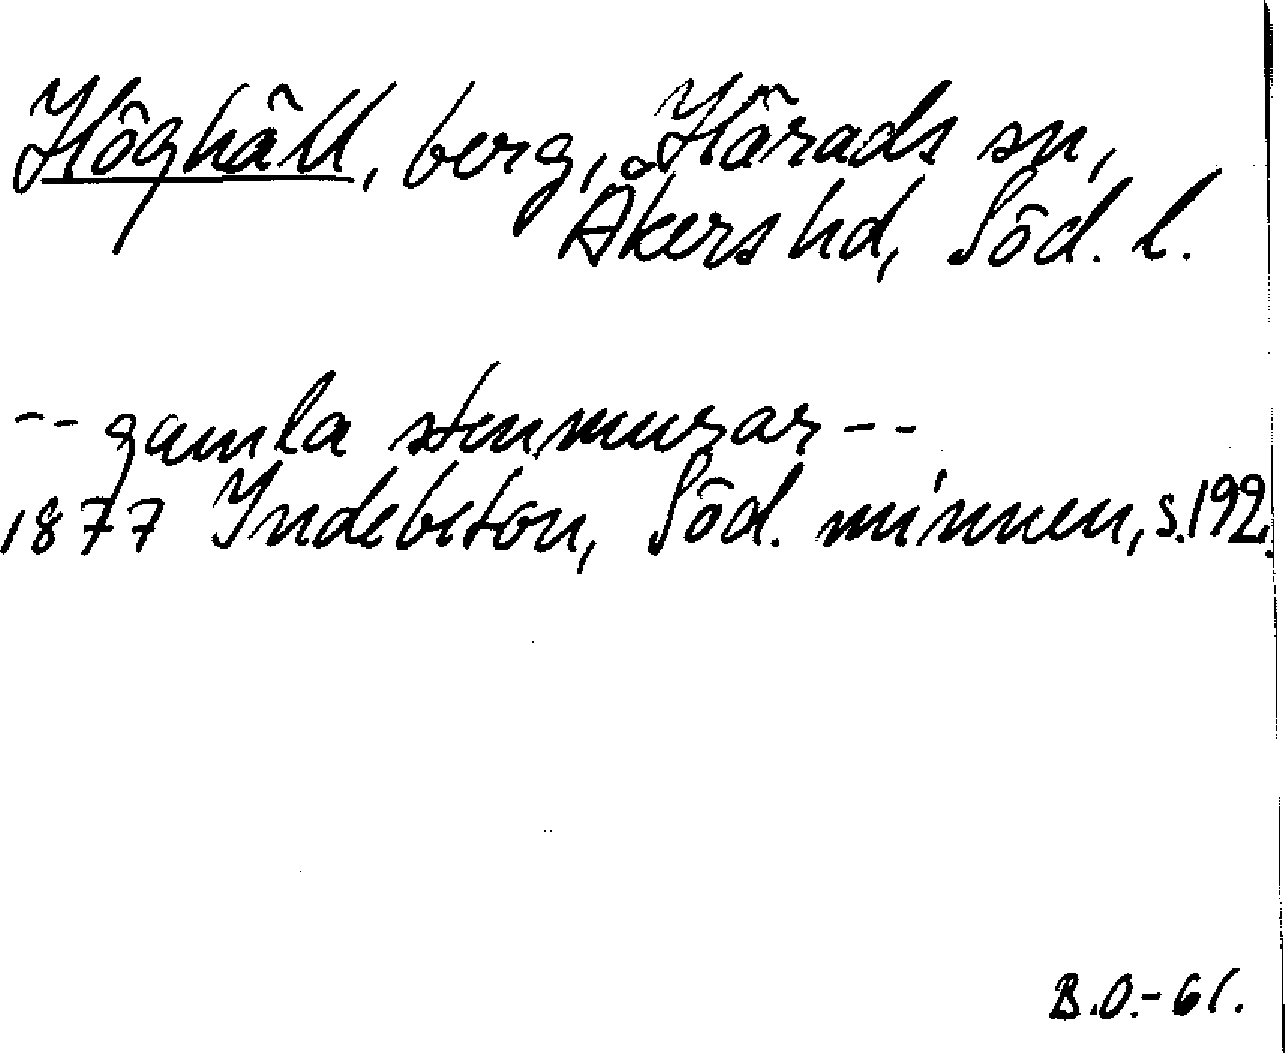 Höghäll, berg, Härads sn,
Åkers hd, Söd. l.
-- gamla stenmurar --
1877 Indebetou, Söd. minnen, s.192.
B.O.-61.